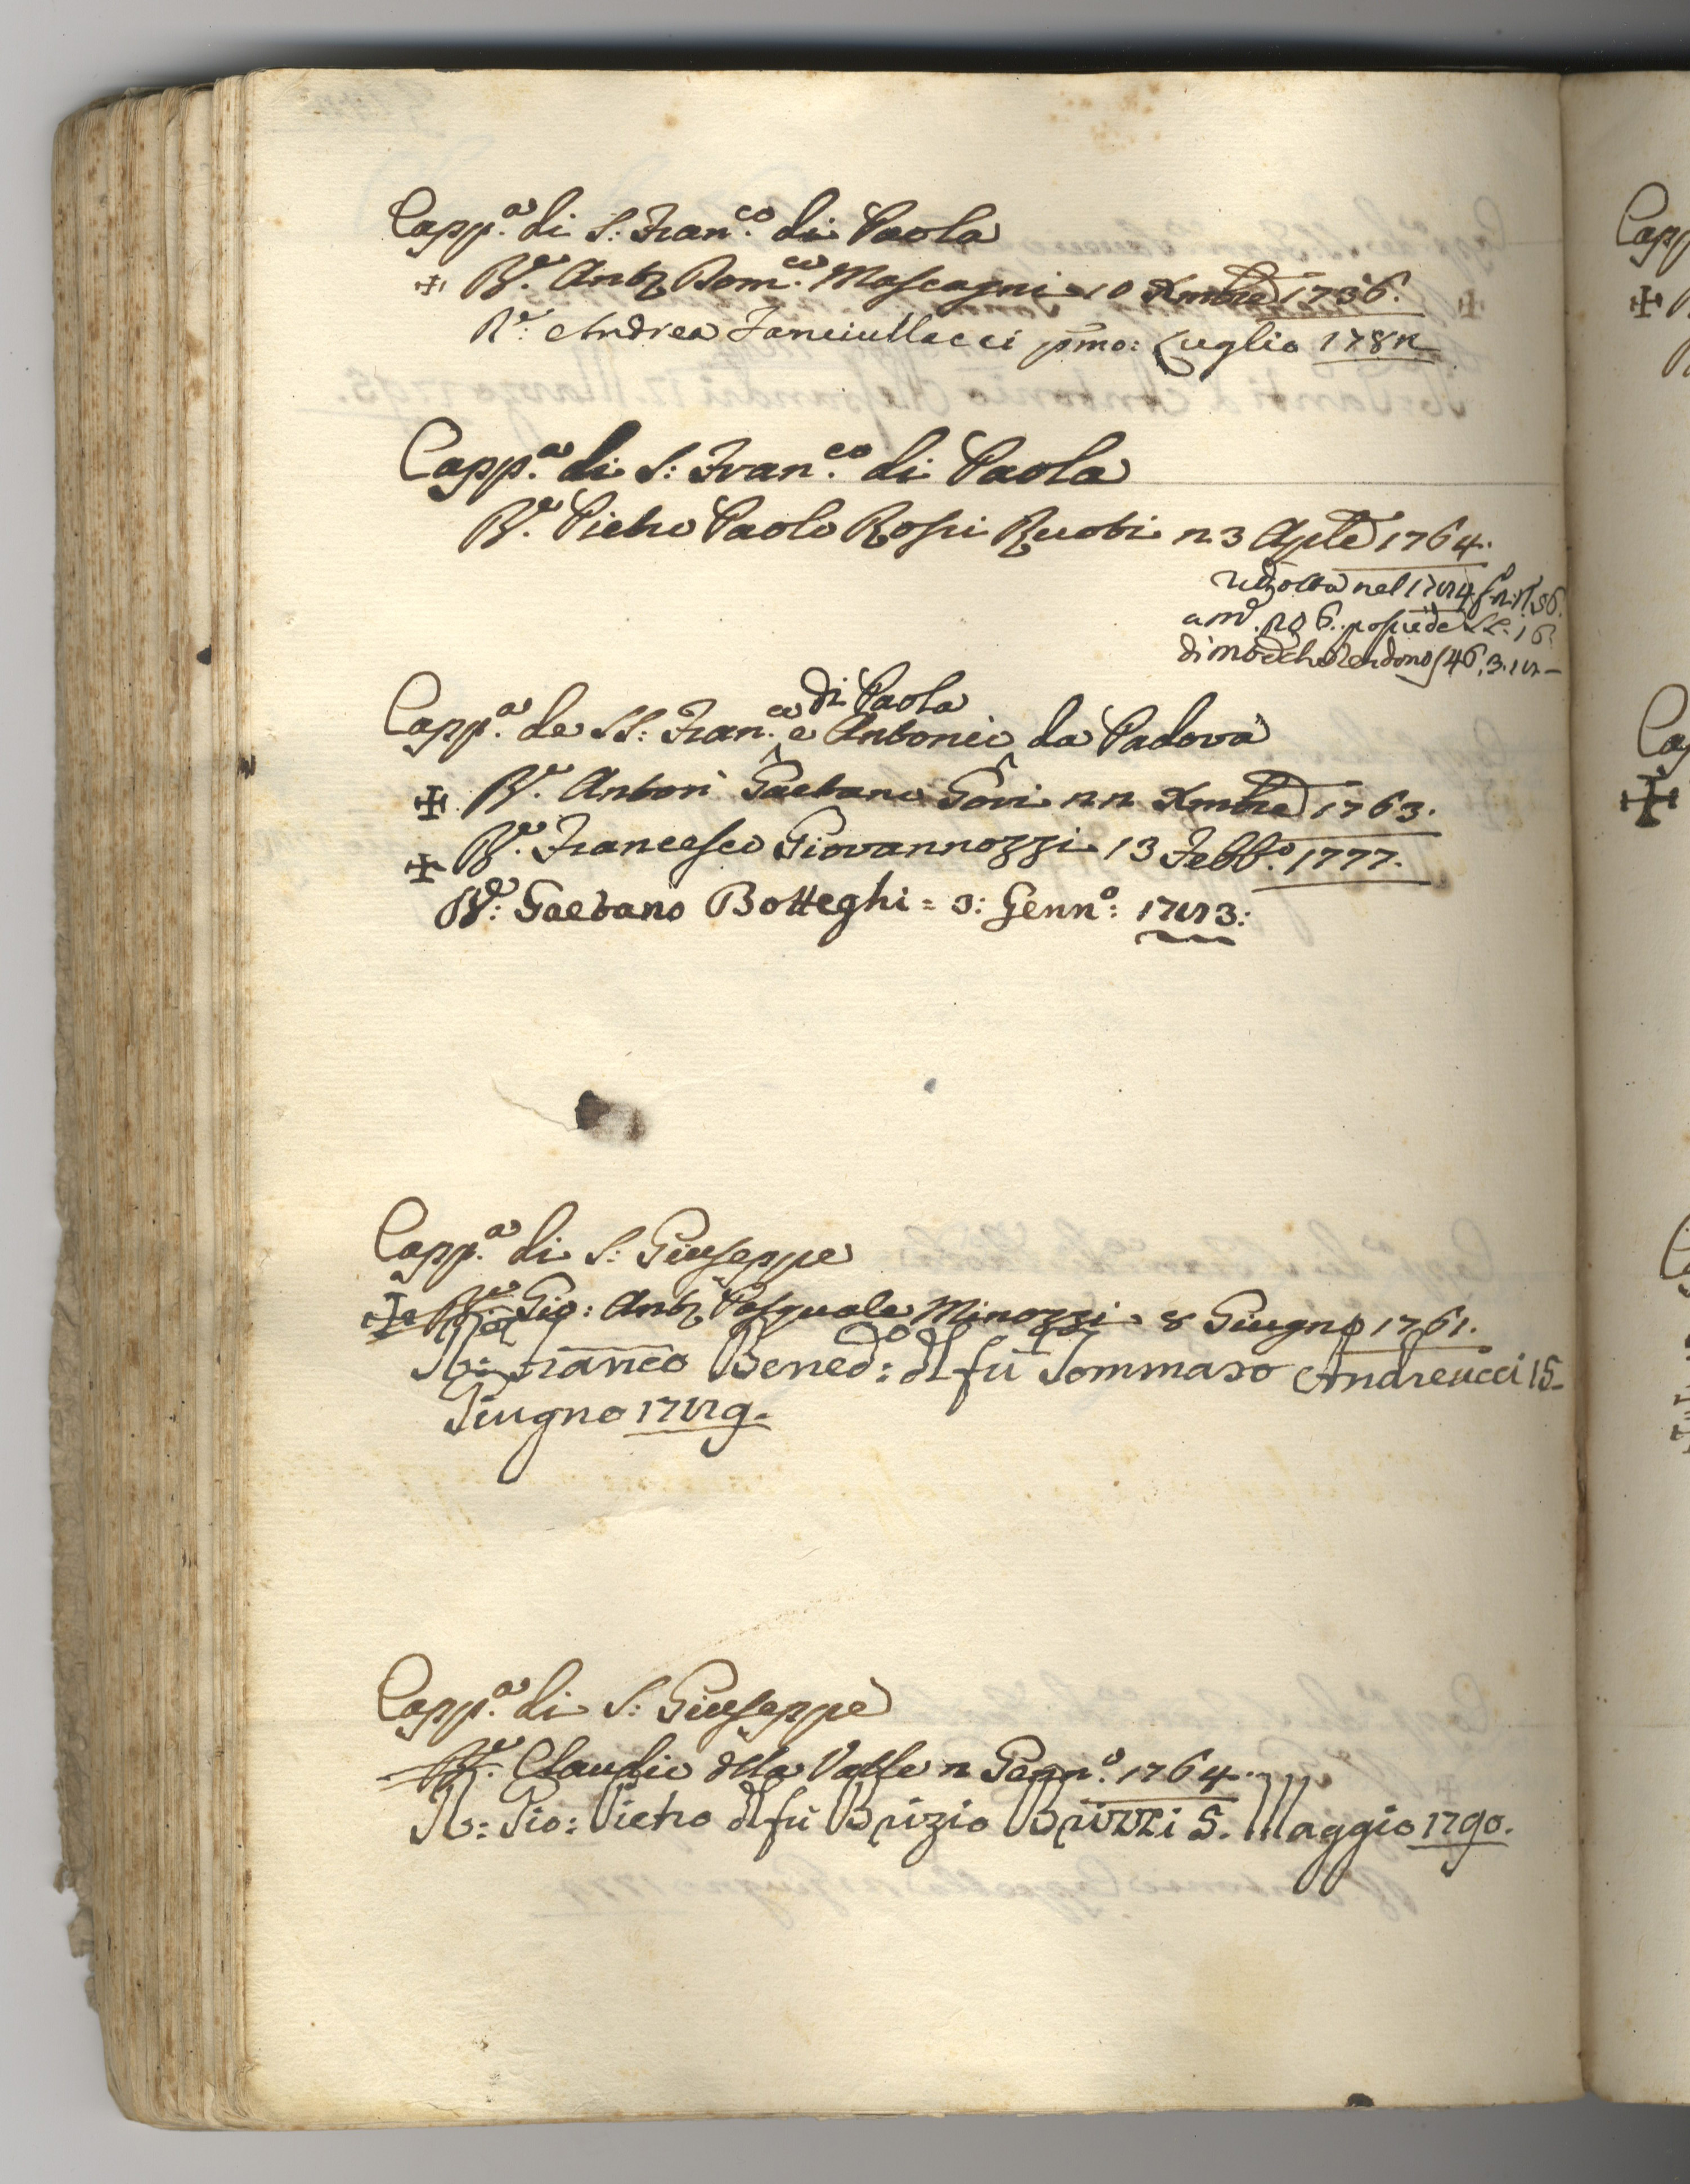 Capp.ª di S: Fran.co di Paola
✠ R.e Ant.o Dom.co Mascagni 10 Xmbre 1736.
R.e Andrea Fanciullacci pmo: Luglio 1782
Capp.ª di S: Fran.co di Paola
R.e Pietro Paolo Rossi Ruobi 23 Aple 1764.
nel 1794
di Paola
Capp.ª de SS: Fran.co e Antonio da Padova
✠ R.e Anton Gaetano Gori 22 Xmbre 1763.
✠ R.e Francesco Giovannozzi 13 Febb.o 1777.
R.e: Gaetano Botteghi = 3: Genn.o: 1793:
Capp.ª di S: Giuseppe
✠ R.e Gio: Ant.o Pasquale Minozzi 8 Giugno 1761.
R: Franco Bened:o dl fù Tommaso Andreucci 15
Giugno 1789.
Capp.ª di S: Giuseppe
R.e Claudio della Valle 2 Genn.o 1764
R: Gio: Pietro dl fù Brizio Brizzi 5. Maggio 1790.